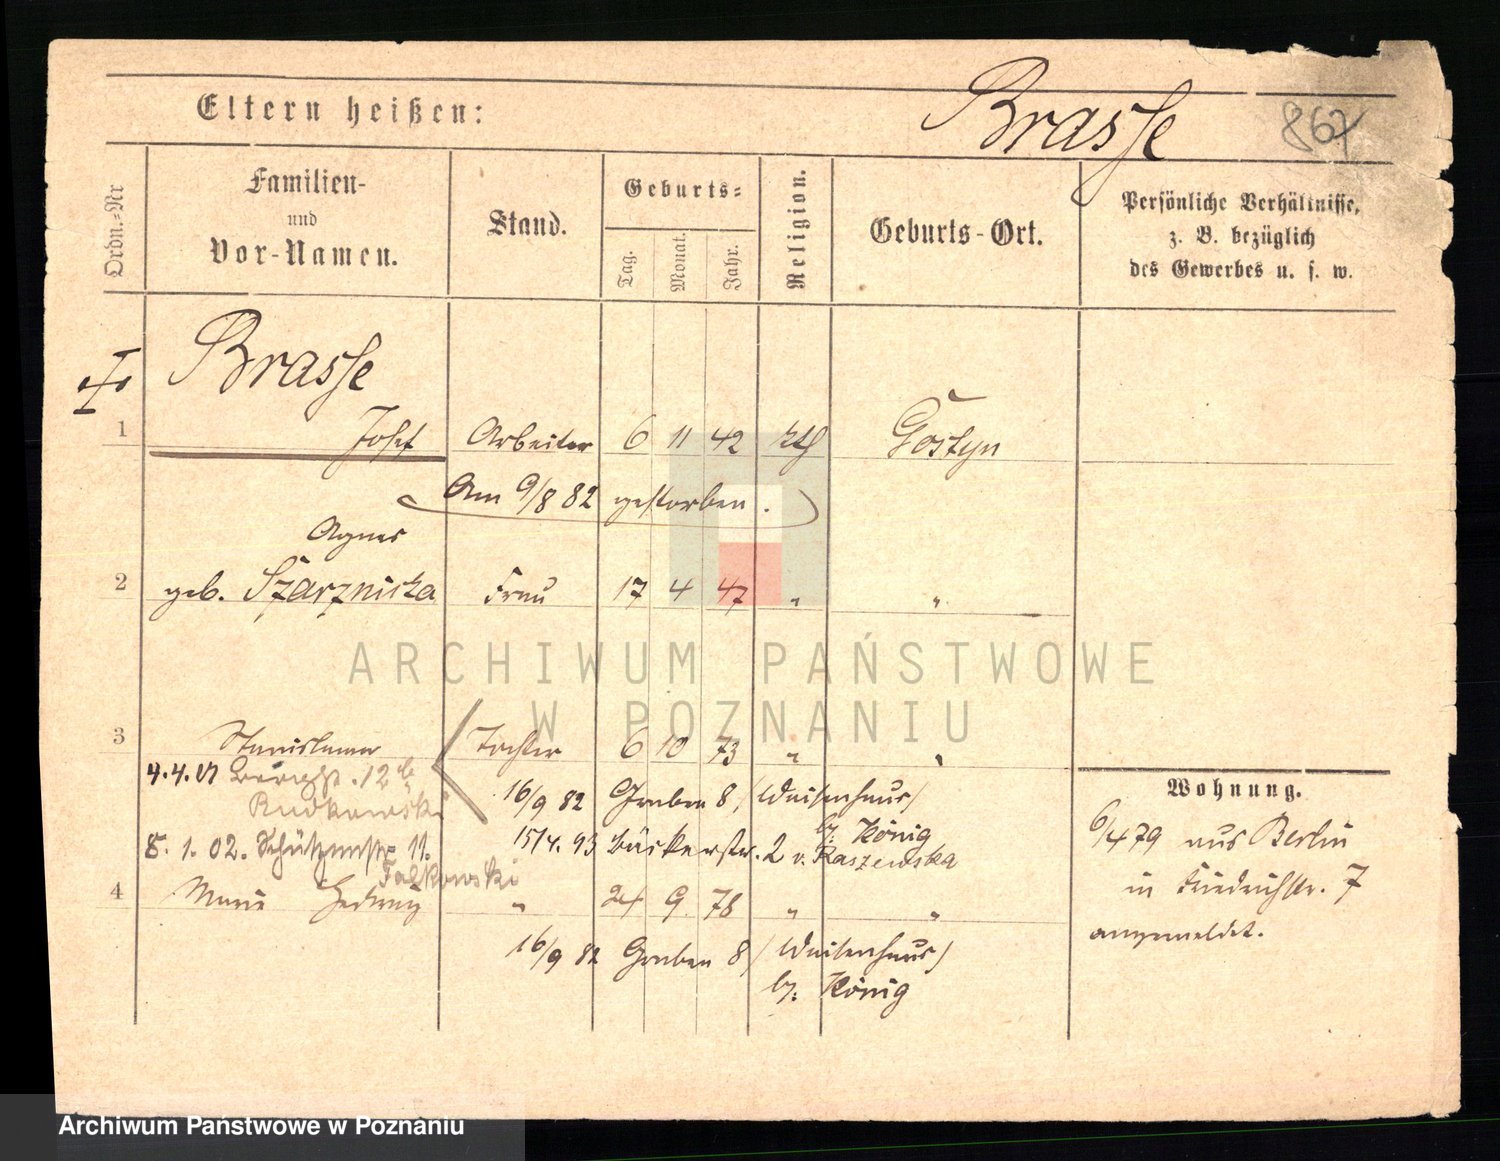 Eltern heißen:
Brasse
867
Ordn.-Nr
Familien-
und
Vor-Namen.
Stand.
Geburts-
Tag.
Monat.
Jahr.
Religion.
Geburts-Ort.
Persönliche Verhältnisse,
z. B. bezüglich
des Gewerbes u. s. w.
Brasse
1 Josef Arbeiter 6 11 42 kth Gostyn
Am 9/8 82 gestorben.
Agnes
2 geb. Szarznicka Frau 17 4 47 " "
ARCHIWUM PAŃSTWOWE
W POZNANIU
3 Stanislawa Tochter 6 10 73 " "
4.4.01 12
Rudkowski
16/9 82 Graben 8 /Waisenhaus/
b. König
8.1.02. Schützenstr 11.
15/4. 93 Bäckerstr. 2 v. Raszewska
Falkowski
4 Marie Hedwig " 24 9 78 " "
16/9 82 Graben 8 /Waisenhaus/
b. König
Wohnung.
6/4 79 aus Berlin
in Friedrichstr. 7
angemeldet.
Archiwum Państwowe w Poznaniu